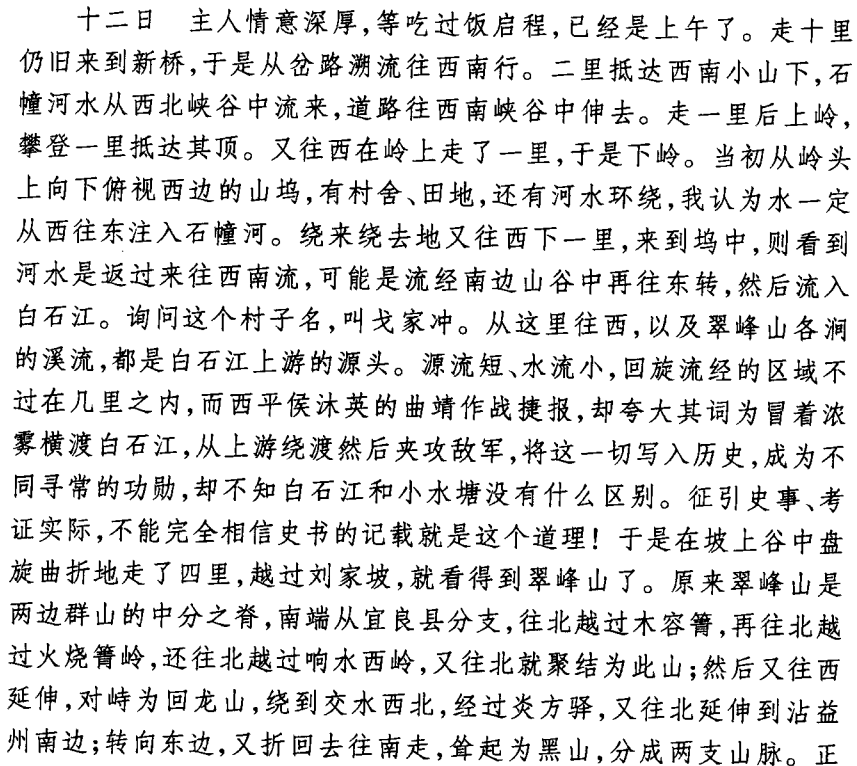 十二日　主人情意深厚,等吃过饭启程,已经是上午了。走十里
仍旧来到新桥,于是从岔路溯流往西南行。二里抵达西南小山下,石
幢河水从西北峡谷中流来,道路往西南峡谷中伸去。走一里后上岭,
攀登一里抵达其顶。又往西在岭上走了一里,于是下岭。当初从岭头
上向下俯视西边的山坞,有村舍、田地,还有河水环绕,我认为水一定
从西往东注入石幢河。绕来绕去地又往西下一里,来到坞中,则看到
河水是返过来往西南流,可能是流经南边山谷中再往东转,然后流入
白石江。询问这个村子名,叫戈家冲。从这里往西,以及翠峰山各涧
的溪流,都是白石江上游的源头。源流短、水流小,回旋流经的区域不
过在几里之内,而西平侯沐英的曲靖作战捷报,却夸大其词为冒着浓
雾横渡白石江,从上游绕渡然后夹攻敌军,将这一切写入历史,成为不
同寻常的功勋,却不知白石江和小水塘没有什么区别。征引史事、考
证实际,不能完全相信史书的记载就是这个道理！于是在坡上谷中盘
旋曲折地走了四里,越过刘家坡,就看得到翠峰山了。原来翠峰山是
两边群山的中分之脊,南端从宜良县分支,往北越过木容箐,再往北越
过火烧箐岭,还往北越过响水西岭,又往北就聚结为此山;然后又往西
延伸,对峙为回龙山,绕到交水西北,经过炎方驿,又往北延伸到沾益
州南边;转向东边,又折回去往南走,耸起为黑山,分成两支山脉。正